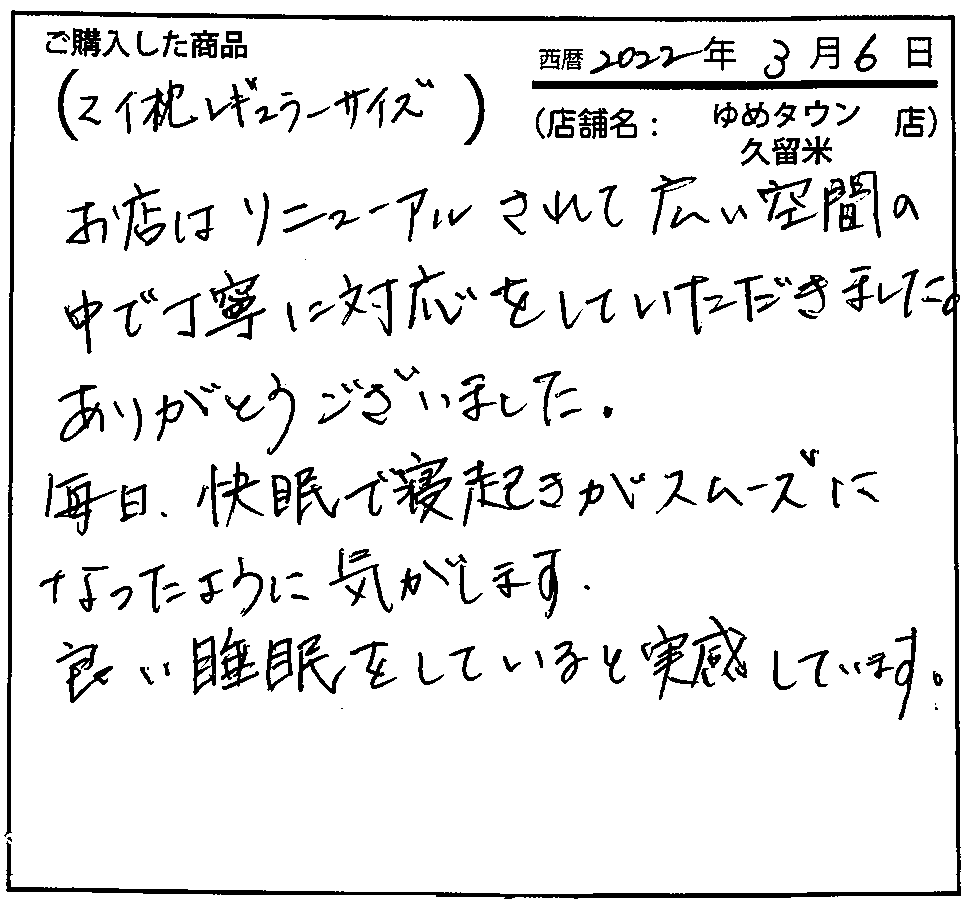 ご購入した商品
西暦 2022年 3月 6日
(スイ枕レギュラーサイズ)
(店舗名： ゆめタウン 久留米 店)
お店はリニューアルされて広い空間の
中で丁寧に対応をしていただきました。
ありがとうございました.
毎日、快眠で寝起きがスムーズに
なったように気がします.
良い睡眠をしていると実感しています。